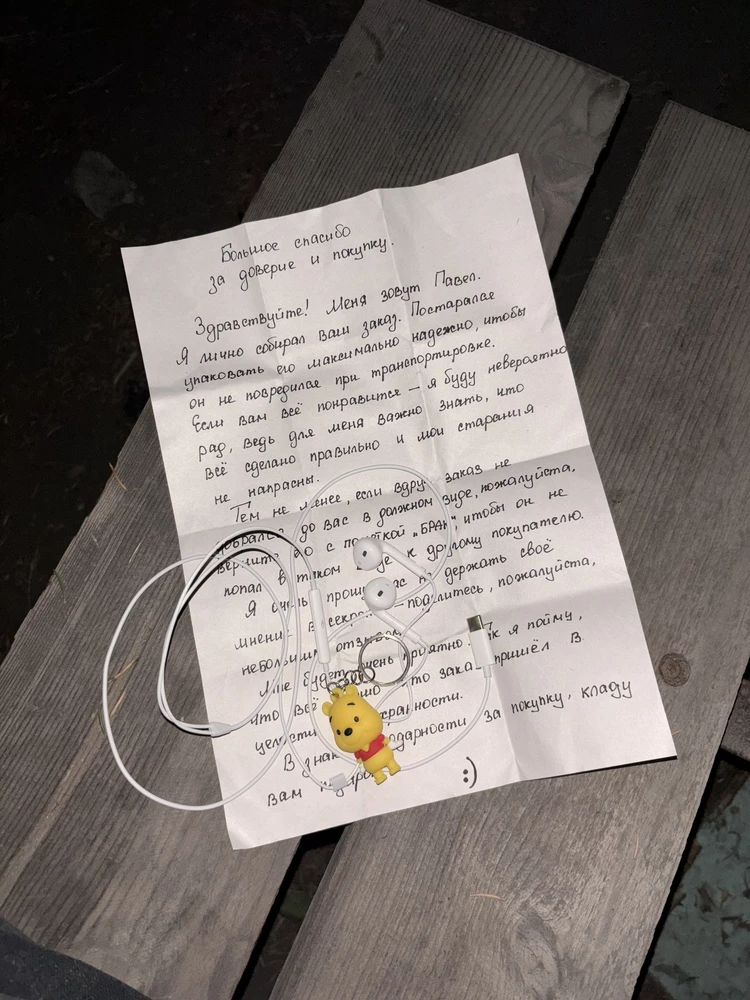 Большое спасибо
за доверие и покупку.
Здравствуйте! Меня зовут Павел.
Я лично собирал Ваш заказ. Постарался
упаковать его максимально надежно, чтобы
он не повредился при транспортировке.
Если вам всё понравится – я буду невероятно
рад, ведь для меня важно знать, что
всё сделано правильно и мои старания
не напрасны.
Тем не менее, если вдруг заказ не
добрался до Вас в должном виде, пожалуйста,
верните его с пометкой „БРАК", чтобы он не
попал в таком виде к другому покупателю.
Я очень прошу Вас не держать своё
мнение в секрете – поделитесь, пожалуйста,
небольшим отзывом.
Мне будет очень приятно. Так я пойму,
что всё хорошо и что заказ пришёл в
целости сохранности.
В знак благодарности за покупку, кладу
вам подарок :)